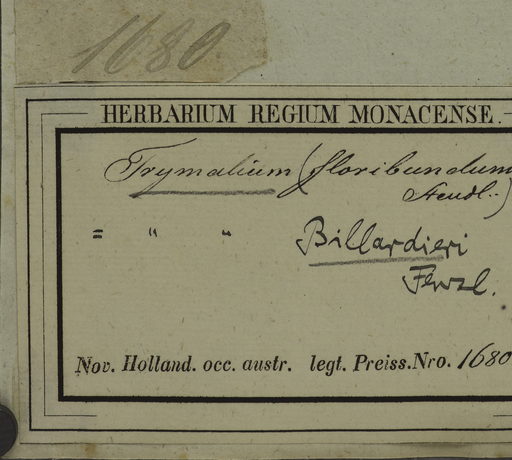 1680
HERBARIUM REGIUM MONACENSE.
Trymalium (floribundum
Steudl.)
= " " Billardieri
Fenzl.
Nov. Holland. occ. austr. legt. Preiss. Nro. 1680